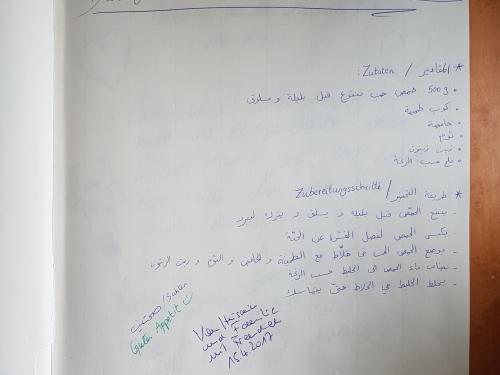 * المقادير / Zutaten :
• 500g حمص حب منقوع قبل بليلة و مسلوق
• كوب طحينة
• حامضة
• ثوم
• زيت زيتون
• ملح حسب الرغبة
* طريقة التحضير / Zubereitungsschritte
- ينقع الحمص قبل بليلة و يسلق و يترك ليبرد
- الحمص لفصل القشر عن الحبة
- يوضع الحمص في خلّاط مع الطحينة و حامض و الثوم و زيت الزيتون
- يضاف ماء الحمص الى الخليط حسب الرغبة
- يخلط الخليط في الخلاط حتى يتماسك
صحتين / Sahten
Guten Appetit
Von Hussein
und Familie
mit Freuden
15.4.2017